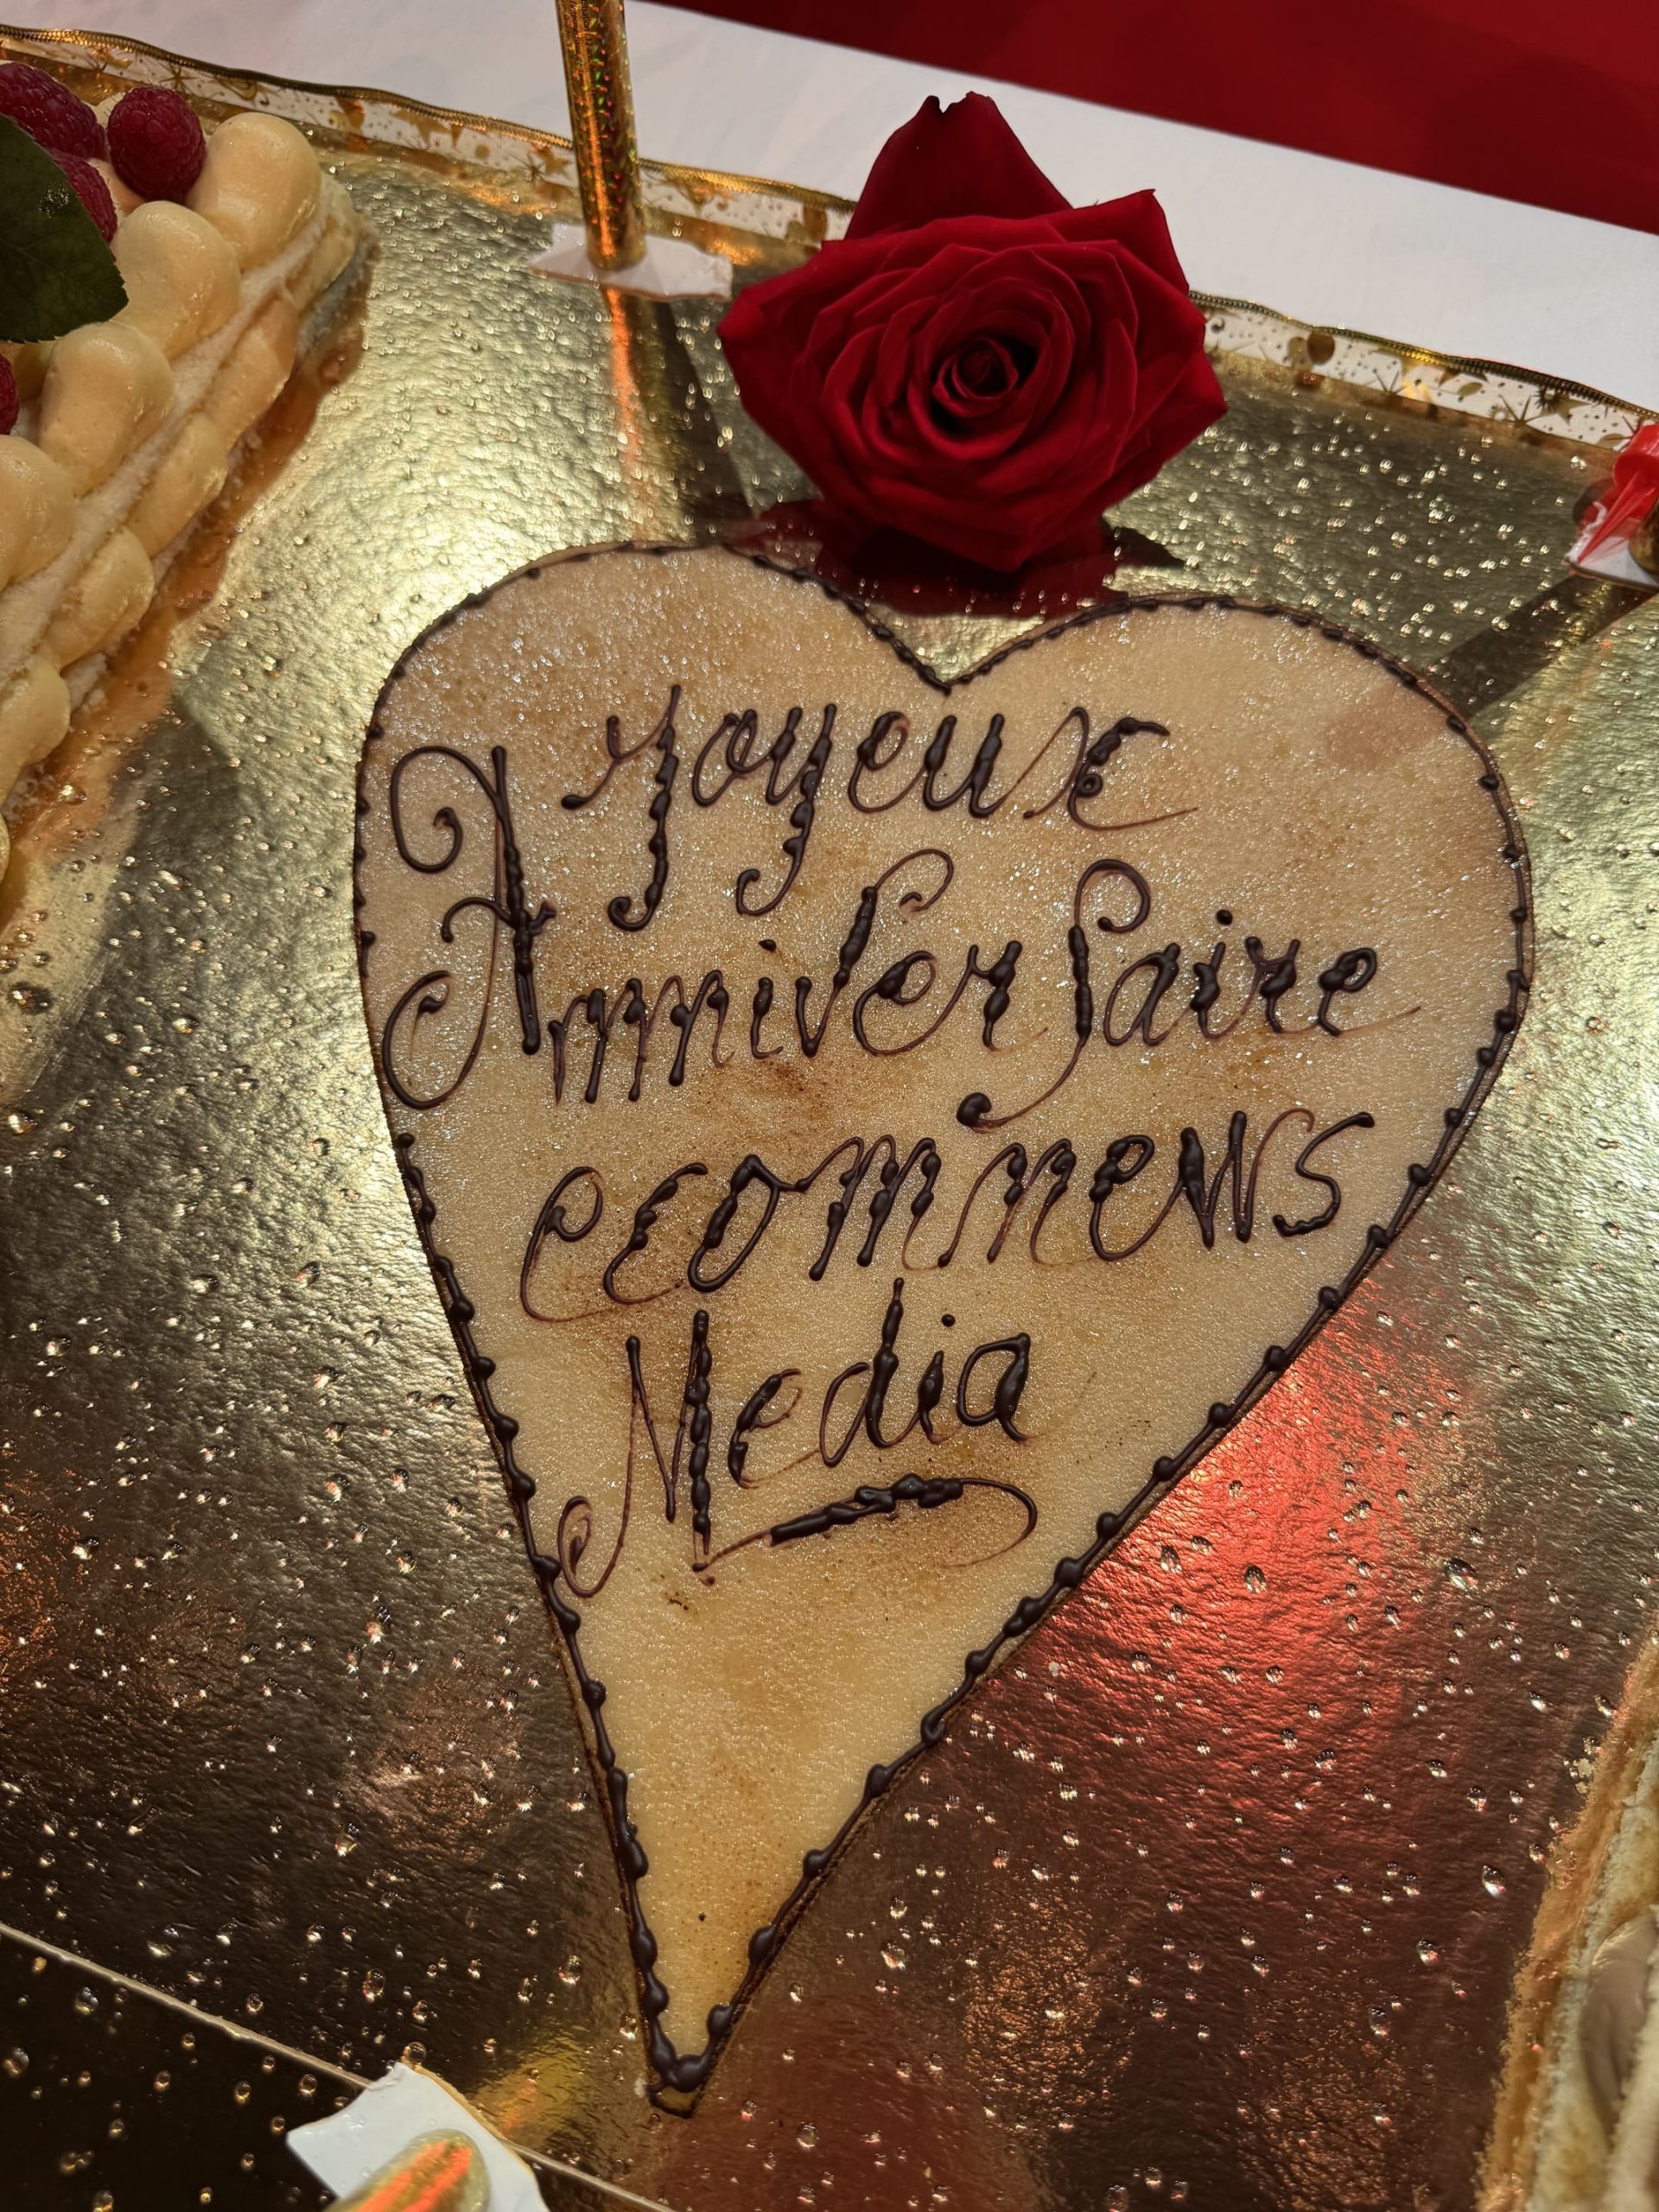 Joyeux
Anniversaire
ecomnews
Media